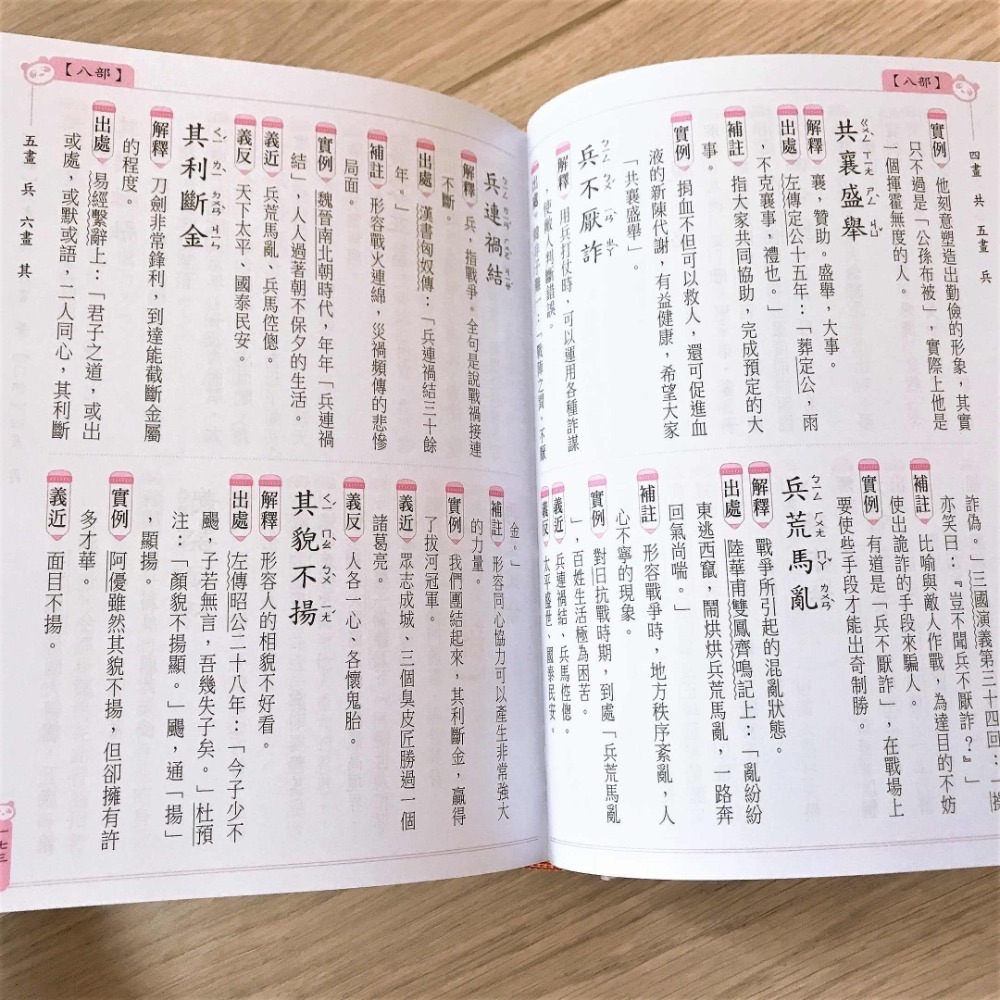 【八部】
四畫 共 五畫 兵
實例 他刻意塑造出勤儉的形象，其實
只不過是「公孫布被」，實際上他是
一個揮霍無度的人。
共襄盛舉
ㄍㄨㄥˋ ㄒㄧㄤ ㄕㄥˋ ㄐㄩˇ
解釋 襄，贊助。盛舉，大事。
出處 左傳定公十五年：「葬定公，雨
，不克襄事，禮也。」
補註 指大家共同協助，完成預定的大
事。
實例 捐血不但可以救人，還可促進血
液的新陳代謝，有益健康，希望大家
「共襄盛舉」。
兵不厭詐
ㄅㄧㄥ ㄅㄨˋ ㄧㄢˋ ㄓㄚˋ
解釋 用兵打仗時，可以運用各種詐謀
，使敵人判斷錯誤。
出處 韓非子難一：「戰陣之間，不厭
詐偽。」三國演義第三十四回：「操
亦笑曰：『豈不聞兵不厭詐？』」
補註 比喻與敵人作戰，為達目的不妨
使出詭詐的手段來騙人。
實例 有道是「兵不厭詐」，在戰場上
要使些手段才能出奇制勝。
兵荒馬亂
ㄅㄧㄥ ㄏㄨㄤ ㄇㄚˇ ㄌㄨㄢˋ
解釋 戰爭所引起的混亂狀態。
出處 陸華甫雙鳳齊鳴記上：「亂紛紛
東逃西竄，鬧烘烘兵荒馬亂，一路奔
回氣尚喘。」
補註 形容戰爭時，地方秩序紊亂，人
心不寧的現象。
實例 對日抗戰時期，到處「兵荒馬亂
」，百姓生活極為困苦。
義近 兵連禍結、兵馬倥傯。
義反 太平盛世、國泰民安。
【八部】
五畫 兵 六畫 其
兵連禍結
ㄅㄧㄥ ㄌㄧㄢˊ ㄏㄨㄛˋ ㄐㄧㄝˊ
解釋 兵，指戰爭。全句是說戰禍接連
不斷。
出處 漢書匈奴傳：「兵連禍結三十餘
年。」
補註 形容戰火連綿，災禍頻傳的悲慘
局面。
實例 魏晉南北朝時代，年年「兵連禍
結」，人人過著朝不保夕的生活。
義近 兵荒馬亂、兵馬倥傯。
義反 天下太平、國泰民安。
其利斷金
ㄑㄧˊ ㄌㄧˋ ㄉㄨㄢˋ ㄐㄧㄣ
解釋 刀劍非常鋒利，到達能截斷金屬
的程度。
出處 易經繫辭上：「君子之道，或出
或處，或默或語，二人同心，其利斷
金。」
補註 形容同心協力可以產生非常強大
的力量。
實例 我們團結起來，其利斷金，贏得
了拔河冠軍。
義近 眾志成城、三個臭皮匠勝過一個
諸葛亮。
義反 人各一心、各懷鬼胎。
其貌不揚
ㄑㄧˊ ㄇㄠˋ ㄅㄨˋ ㄧㄤˊ
解釋 形容人的相貌不好看。
出處 左傳昭公二十八年：「今子少不
颺，子若無言，吾幾失子矣。」杜預
注：「顏貌不揚顯。」颺，通「揚」
，顯揚。
實例 阿優雖然其貌不揚，但卻擁有許
多才華。
義近 面目不揚。
一七三